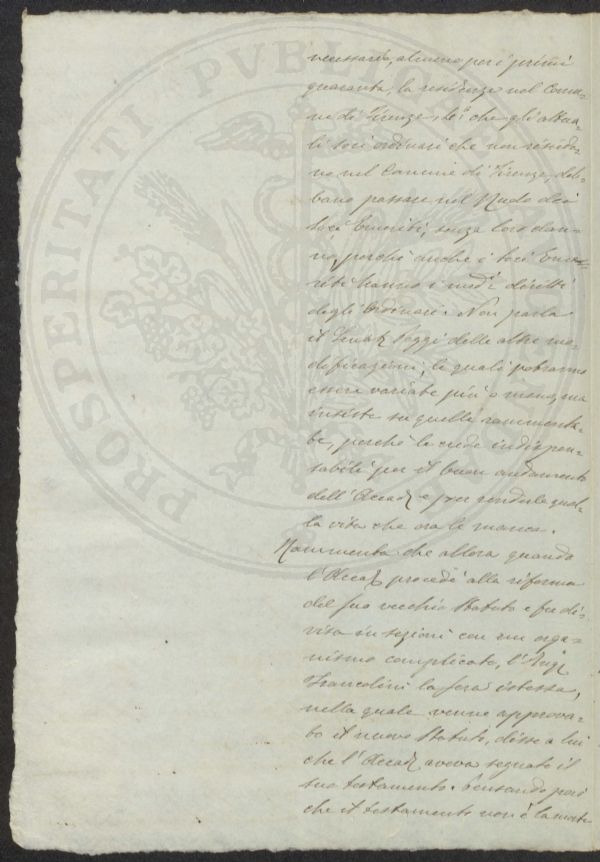 PROSPERITATI PVBLICAE
necessaria, almeno per i primi
quaranta, la residenza nel Comu-
ne di Firenze, che gli attua-
li soci ordinari che non risiedo-
no nel Comune di Firenze, deb-
bano passare nel Ruolo dei
soci Emeriti, senza loro dan-
no, perchè anche i soci Eme-
riti hanno i medi diritti
degli Ordinari. Non parla
il Senat Poggi delle altre mo-
dificazioni, le quali potranno
essere variate più o meno, ma
insiste su quelle rammenta-
te, perchè le crede indispen-
sabili per il buon andamento
dell'Accad e per renderle quel-
la vita che ora le manca.
Rammenta che allora quando
l'Accad procedè alla riforma
del suo vecchio Statuto e fu di-
visa in sezioni con un orga-
nismo complicato, l'Ing
Francolini la sera istessa,
nella quale venne approva-
to il nuovo Statuto, disse a lui
che l'Accad aveva segnato il
suo testamento. Pensando però
che il testamento non è la morte